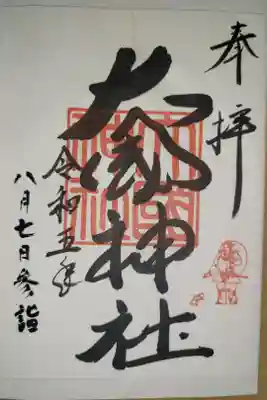 奉拝
大國神社
令和五年
八月七日參詣